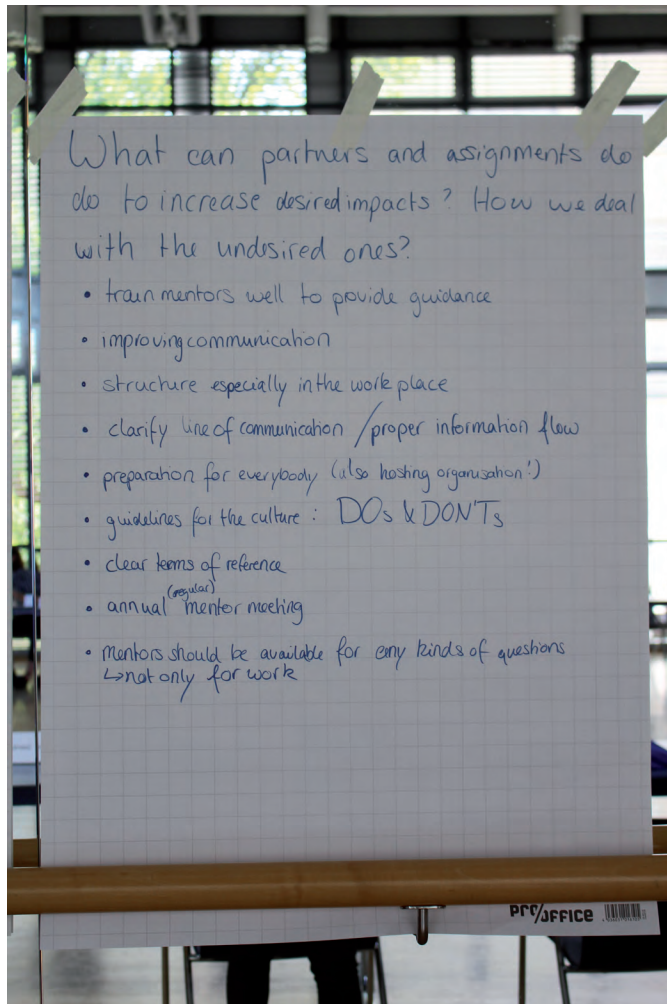 What can partners and assignments do
do to increase desired impacts? How we deal
with the undesired ones?
• train mentors well to povide guidance
• improving communication
• structure especially in the work place
• clarify line of communication / proper information flow
• preparation for everybody (also hosting organisation!)
• guidelines for the culture: DOs & DON'Ts
• clear terms of reference
(regular)
• annual mentor meeting
• mentors should be available for any kinds of questions
↳ not only for work
PRO/OFFICE